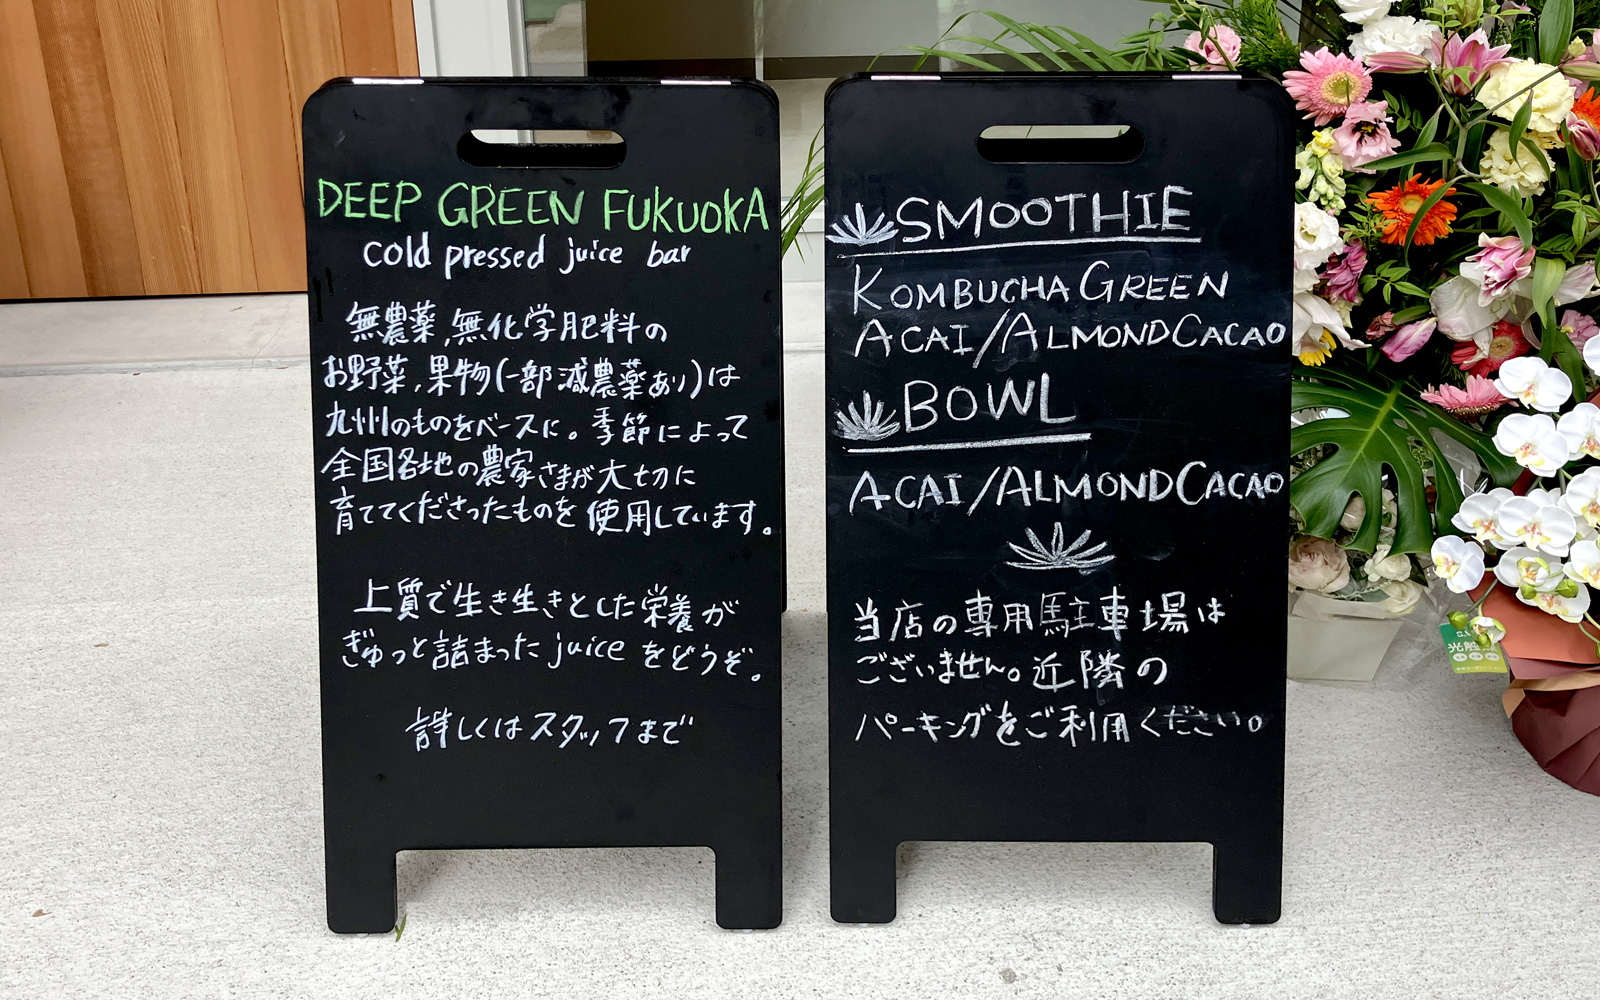 DEEP GREEN FUKUOKA
cold pressed juice bar
無農薬,無化学肥料の
お野菜,果物(一部減農薬あり)は
九州のものをベースに。季節によって
全国各地の農家さまが大切に
育ててくださったものを使用しています。
上質で生き生きとした栄養が
ぎゅっと詰まったjuiceをどうぞ。
詳しくはスタッフまで
SMOOTHIE
KOMBUCHA GREEN
ACAI/ALMOND CACAO
BOWL
ACAI/ALMOND CACAO
当店の専用駐車場は
ございません。近隣の
パーキングをご利用ください。
光触媒